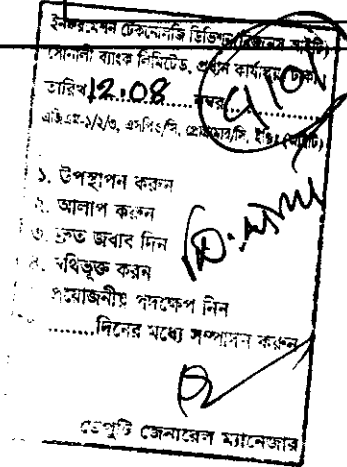 ইনফরমেশন টেকনোলজি ডিভিশন (বিজনেস আইটি)
সোনালী ব্যাংক লিমিটেড, প্রধান কার্যালয়, ঢাকা।
তারিখ 12.08 নম্বর
এজিএম-১/২/৩, এসপিও/সি, প্রোগ্রামার/সি, ইঞ্জিঃ (আইটি)
১. উপস্থাপন করুন
২. আলাপ করুন
৩. দ্রুত জবাব দিন
৪. নথিভূক্ত করন
প্রয়োজনীয় পদক্ষেপ নিন
........দিনের মধ্যে সম্পাদন করুন
ডেপুটি জেনারেল ম্যানেজার